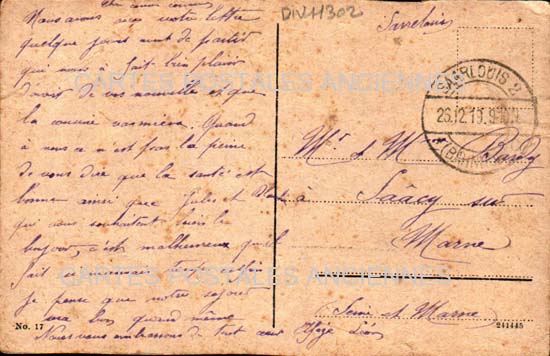 DIV.H302
Nous avons reçu votre lettre
quelque jours avant de partir
qui nous a fait bien plaisir
d'avoir de vos nouvelles et que
la cousine Quand
à vous ce n'est pas la peine
de vous dire que la santé est
bonne ainsi que Jules et
qui vous souhaitent bien le
bonjour, c'est malheureux qu'il
fait mauvais temps ici
je pense que notre séjour
sera bon quand même
Nous vous embrassons de tout cœur
Sarrelouis
SAARLOUIS 2
26.12.19.9-10V.
(BAHNHOF)
Mr et Mme Bardy
à Saâcy sur
Marne
Seine et Marne
No. 17
241445
CARTES POSTALES ANCIENNES
CARTES POSTALES ANCIENNES